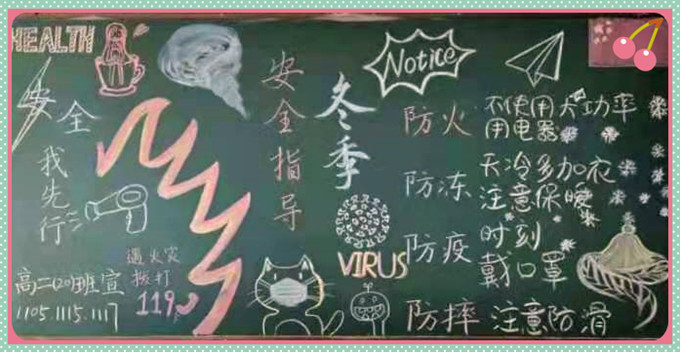 HEALTH
安全我先行
高二(20)班宣
1105.1115.1117
遇火灾
拨打
119
安全指导
冬季
Notice
VIRUS
防火 不使用大功率
用电器
防冻 天冷多加衣
注意保暖
防疫 时刻
戴口罩
防摔 注意防滑